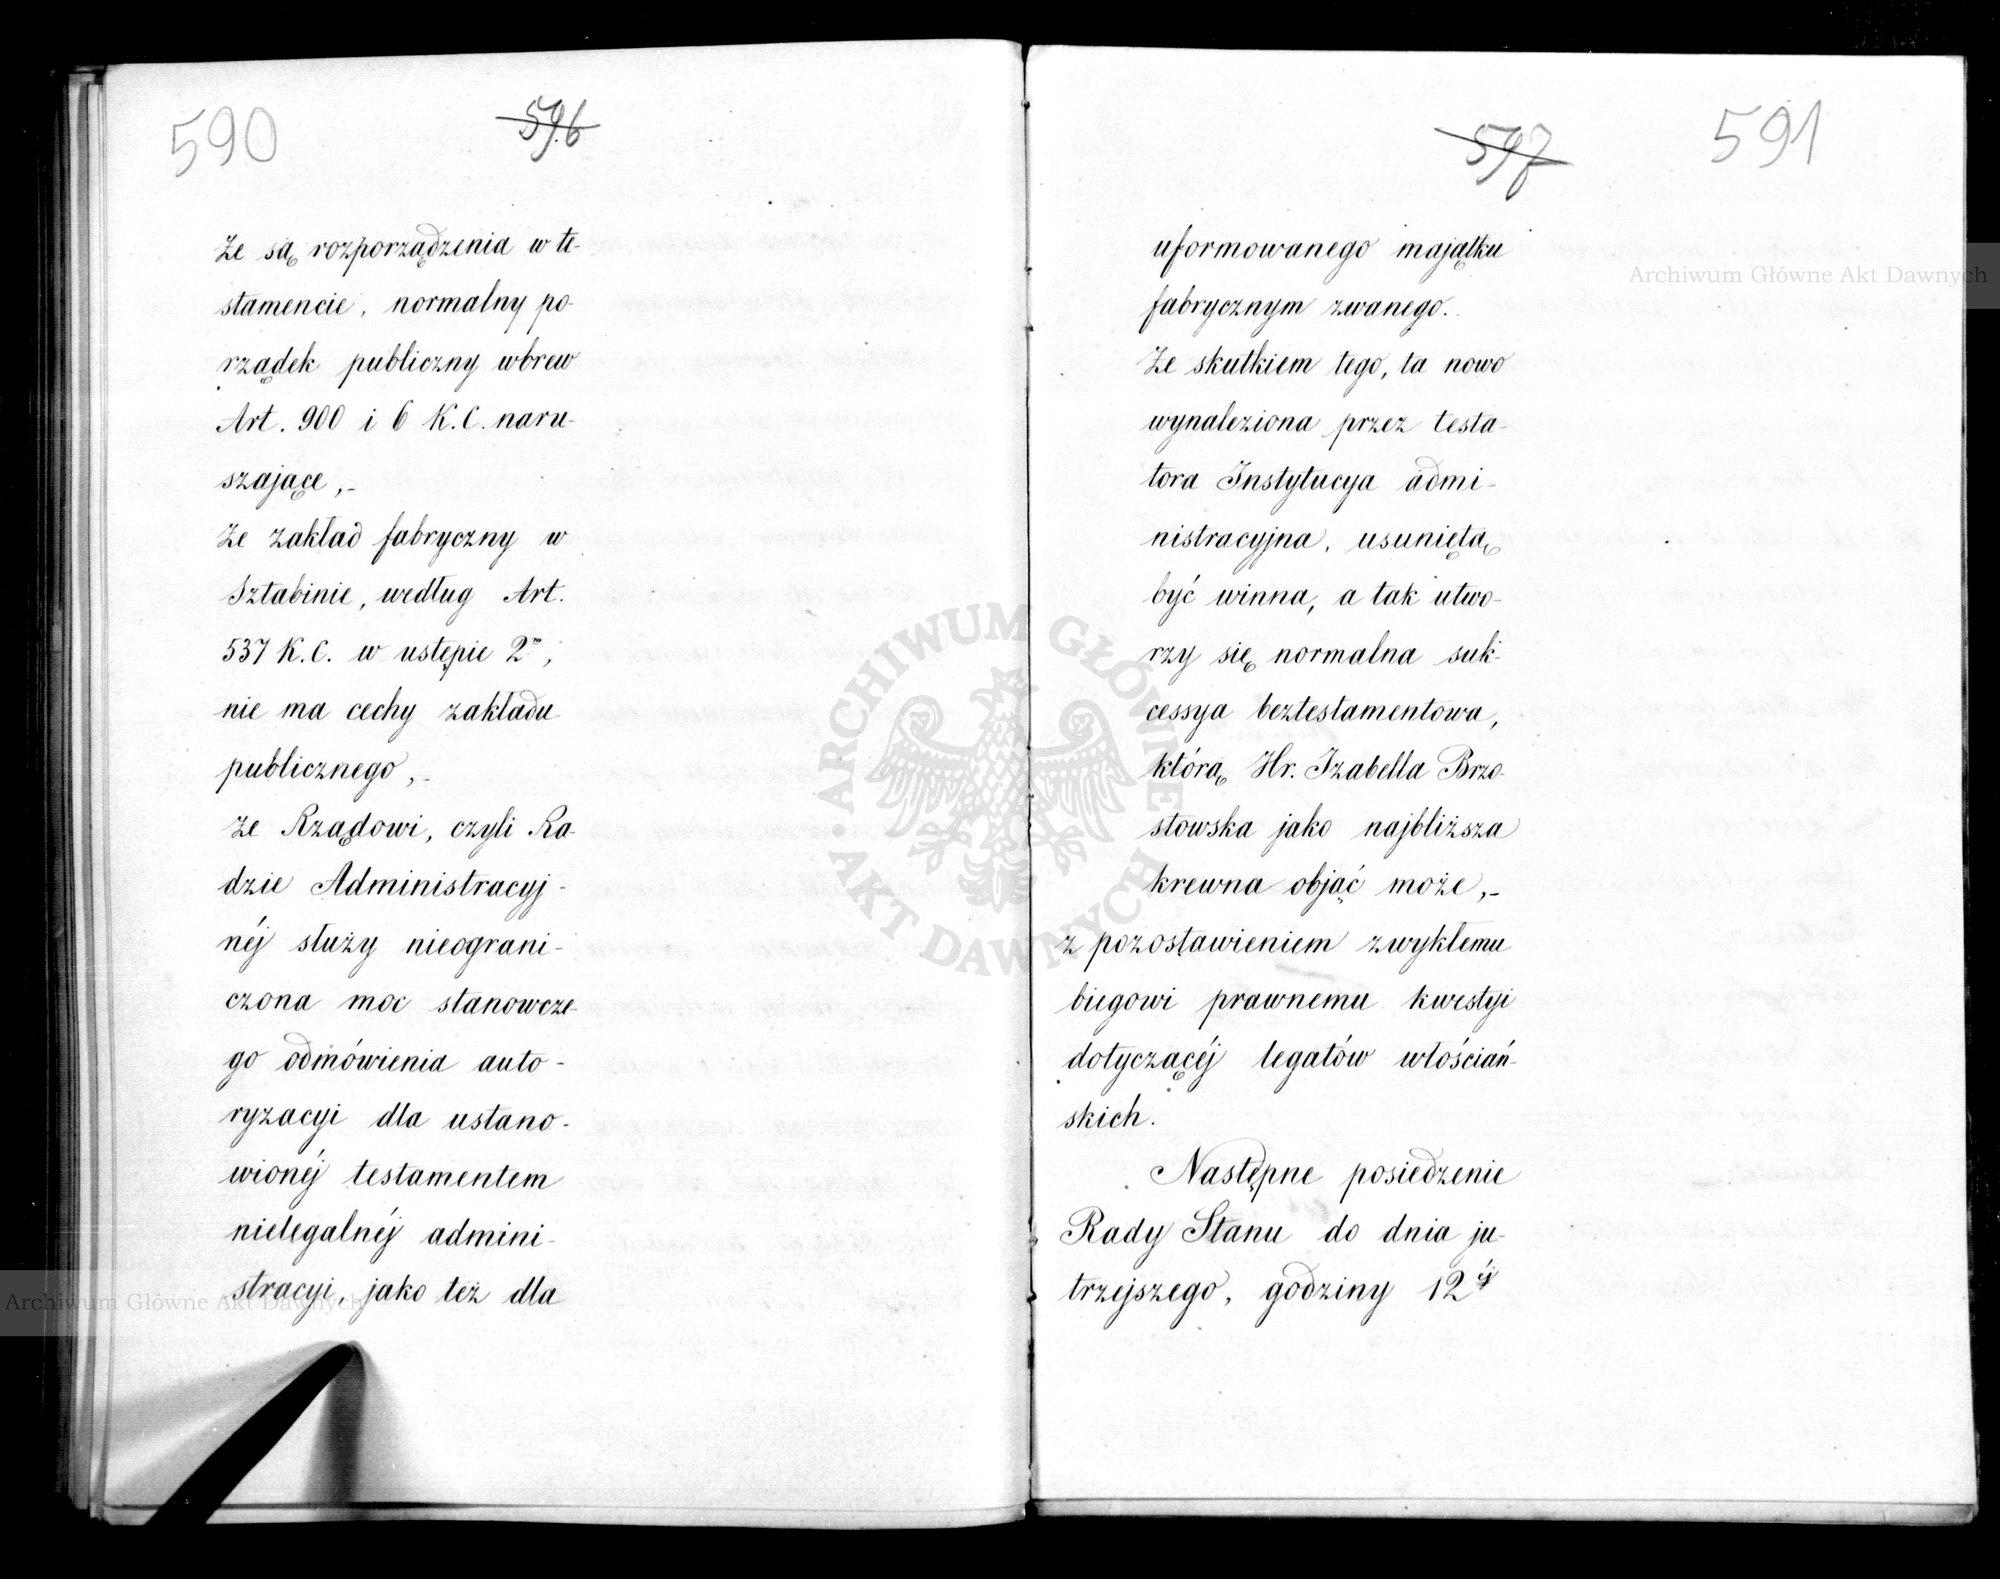 590
596
Że są rozporządzenia w te-
stamencie, normalny po-
rządek publiczny wbrew
Art. 900 i 6 K.C. naru-
szające,-
Że zakład fabryczny w
Sztabinie, według Art.
537 K.C. w ustępie 2m,
nie ma cechy zakładu
publicznego,-
Że Rządowi, czyli Ra-
dzie Administracyj-
néj służy nieograni-
czona moc stanowcze-
go odmówienia auto-
ryzacyi dla ustano-
wionéj testamentem
nielegalnéj admini-
stracyi, jako też dla
597
591
uformowanego majątku
fabrycznym zwanego.
Że skutkiem tego, ta nowo
wynaleziona przez testa-
tora Instytucya admi-
nistracyjna, usuniętą
być winna, a tak utwo-
rzy się normalna suk-
cessya beztestamentowa,
którą Hr. Izabella Brzo-
stowska jako najbliższa
krewna objąć może,-
z pozostawieniem zwykłemu
biegowi prawnemu kwestyi
dotyczącéj legatów włościań-
skich.
Następne posiedzenie
Rady Stanu do dnia ju-
trzejszego, godziny 12éj
ARCHIWUM GŁÓWNE AKT DAWNYCH
Archiwum Główne Akt Dawnych
Archiwum Główne Akt Dawnych